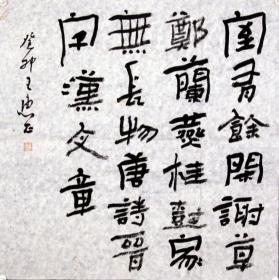 室有餘閑謝草
鄭蘭燕桂樹家
無長物唐詩晉
字漢文章
癸卯王